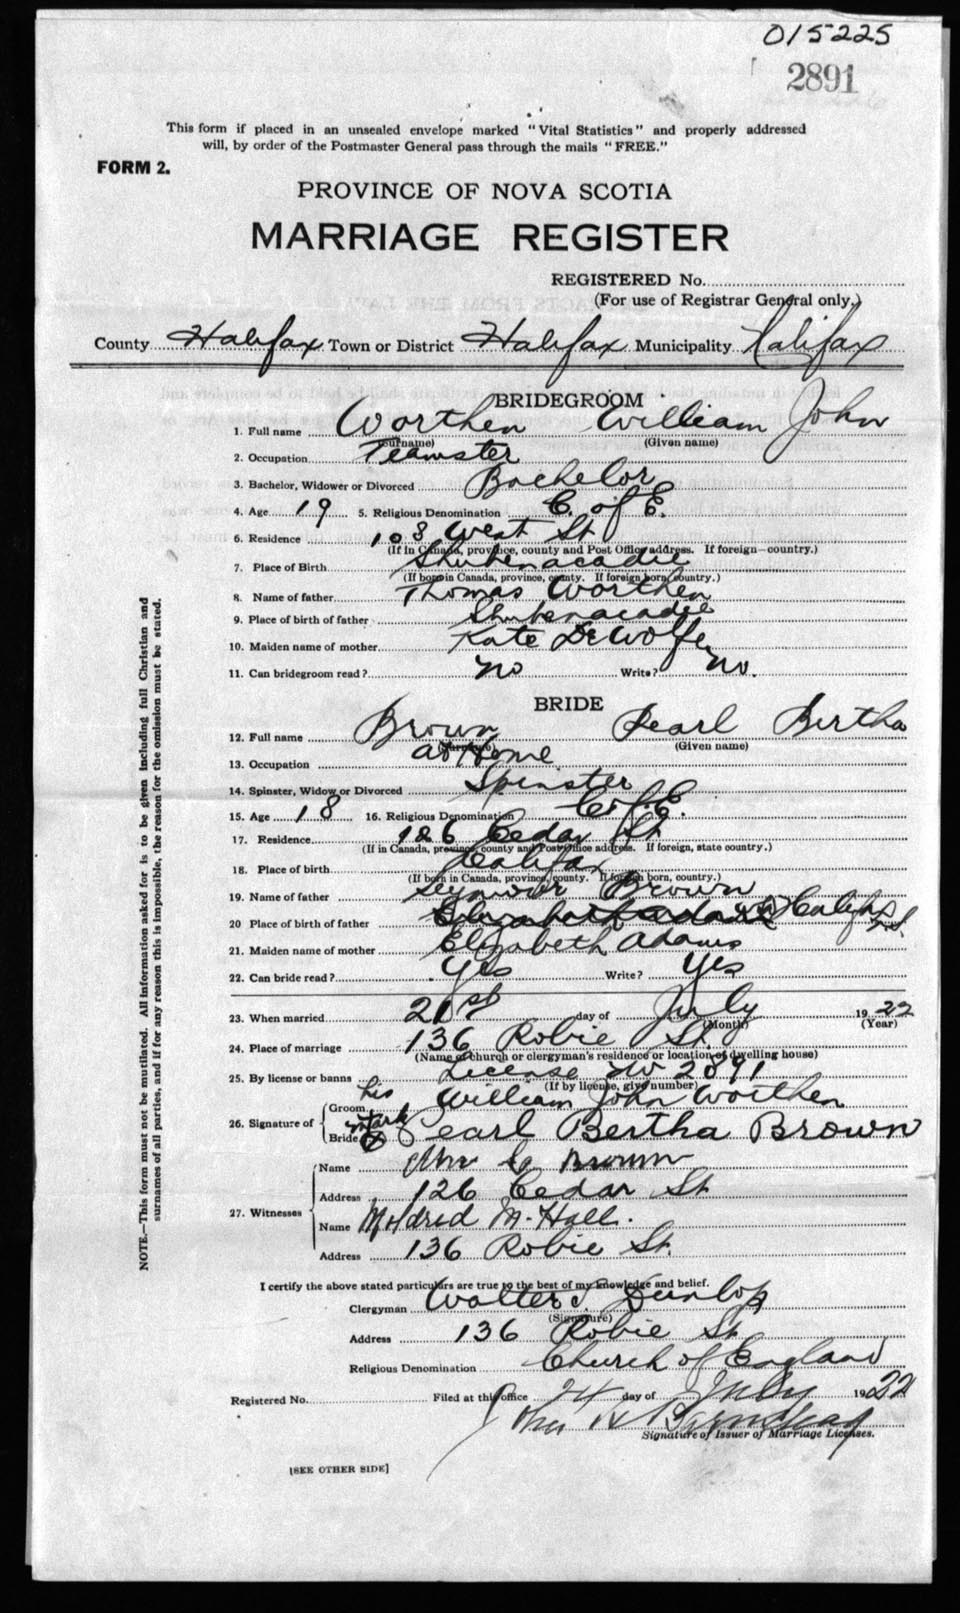 015225
2891
This form if placed in an unsealed envelope marked "Vital Statistics" and properly addressed
will, by order of the Postmaster General pass through the mails "FREE."
FORM 2.
PROVINCE OF NOVA SCOTIA
MARRIAGE REGISTER
REGISTERED No.
(For use of Registrar General only.)
County Halifax Town or District Halifax Municipality Halifax
BRIDEGROOM
1. Full name Worthen William John
(Surname) (Given name)
2. Occupation Teamster
3. Bachelor, Widower or Divorced Bachelor
4. Age 19 5. Religious Denomination C. of E.
6. Residence 103 West St
(If in Canada, province, county and Post Office address. If foreign—country.)
7. Place of Birth Shubenacadie
(If born in Canada, province, county. If foreign born, country.)
8. Name of father Thomas Worthen
9. Place of birth of father Shubenacadie
10. Maiden name of mother Kate DeWolfe
11. Can bridegroom read? no Write? no.
BRIDE
12. Full name Brown Pearl Bertha
(Surname) (Given name)
13. Occupation at Home
14. Spinster, Widow or Divorced Spinster
15. Age 18 16. Religious Denomination C. of E.
17. Residence 126 Cedar St
(If in Canada, province, county and Post Office address. If foreign, state country.)
18. Place of birth Halifax
(If born in Canada, province, county. If foreign born, country.)
19. Name of father Seymour Brown
20 Place of birth of father Halifax N.S.
21. Maiden name of mother Elizabeth Adams
22. Can bride read? Yes Write? Yes
23. When married 21st day of July 1922
(Month) (Year)
24. Place of marriage 136 Robie St.
(Name of church or clergyman's residence or location of dwelling house)
25. By license or banns License No 2891
(If by license, give number)
26. Signature of
Groom his William John Worthen
mark X
Bride Pearl Bertha Brown
27. Witnesses
Name Mrs Brown
Address 126 Cedar St
Name Mildred M. Hall.
Address 136 Robie St.
I certify the above stated particulars are true to the best of my knowledge and belief.
Clergyman Walter Dunlop
(Signature)
Address 136 Robie St.
Religious Denomination Church of England
Registered No. Filed at this office 24 day of July 1922
Signature of Issuer of Marriage Licenses.
[SEE OTHER SIDE]
NOTE.—This form must not be mutilated. All information asked for is to be given including full Christian and
surnames of all parties, and if for any reason this is impossible, the reason for the omission must be stated.